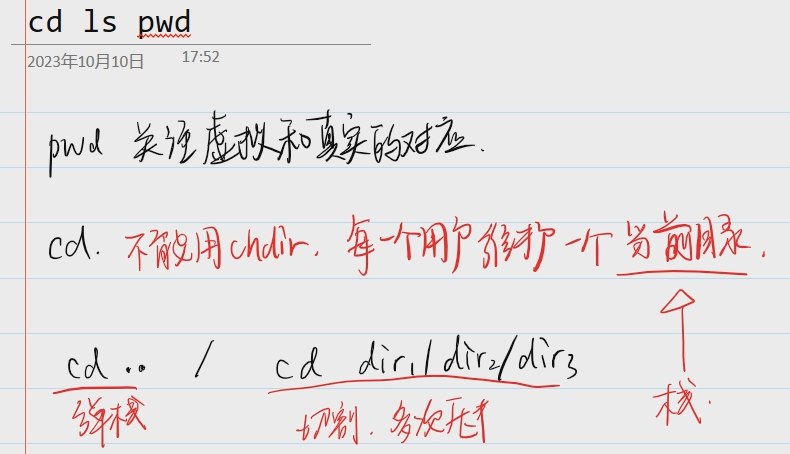 cd ls pwd
2023年10月10日 17:52
pwd 关注虚拟和真实的对应.
cd. 不能用chdir. 每一个用户维护一个当前目录.
cd .. / cd dir1/dir2/dir3
弹栈 切割. 多次压栈 栈.